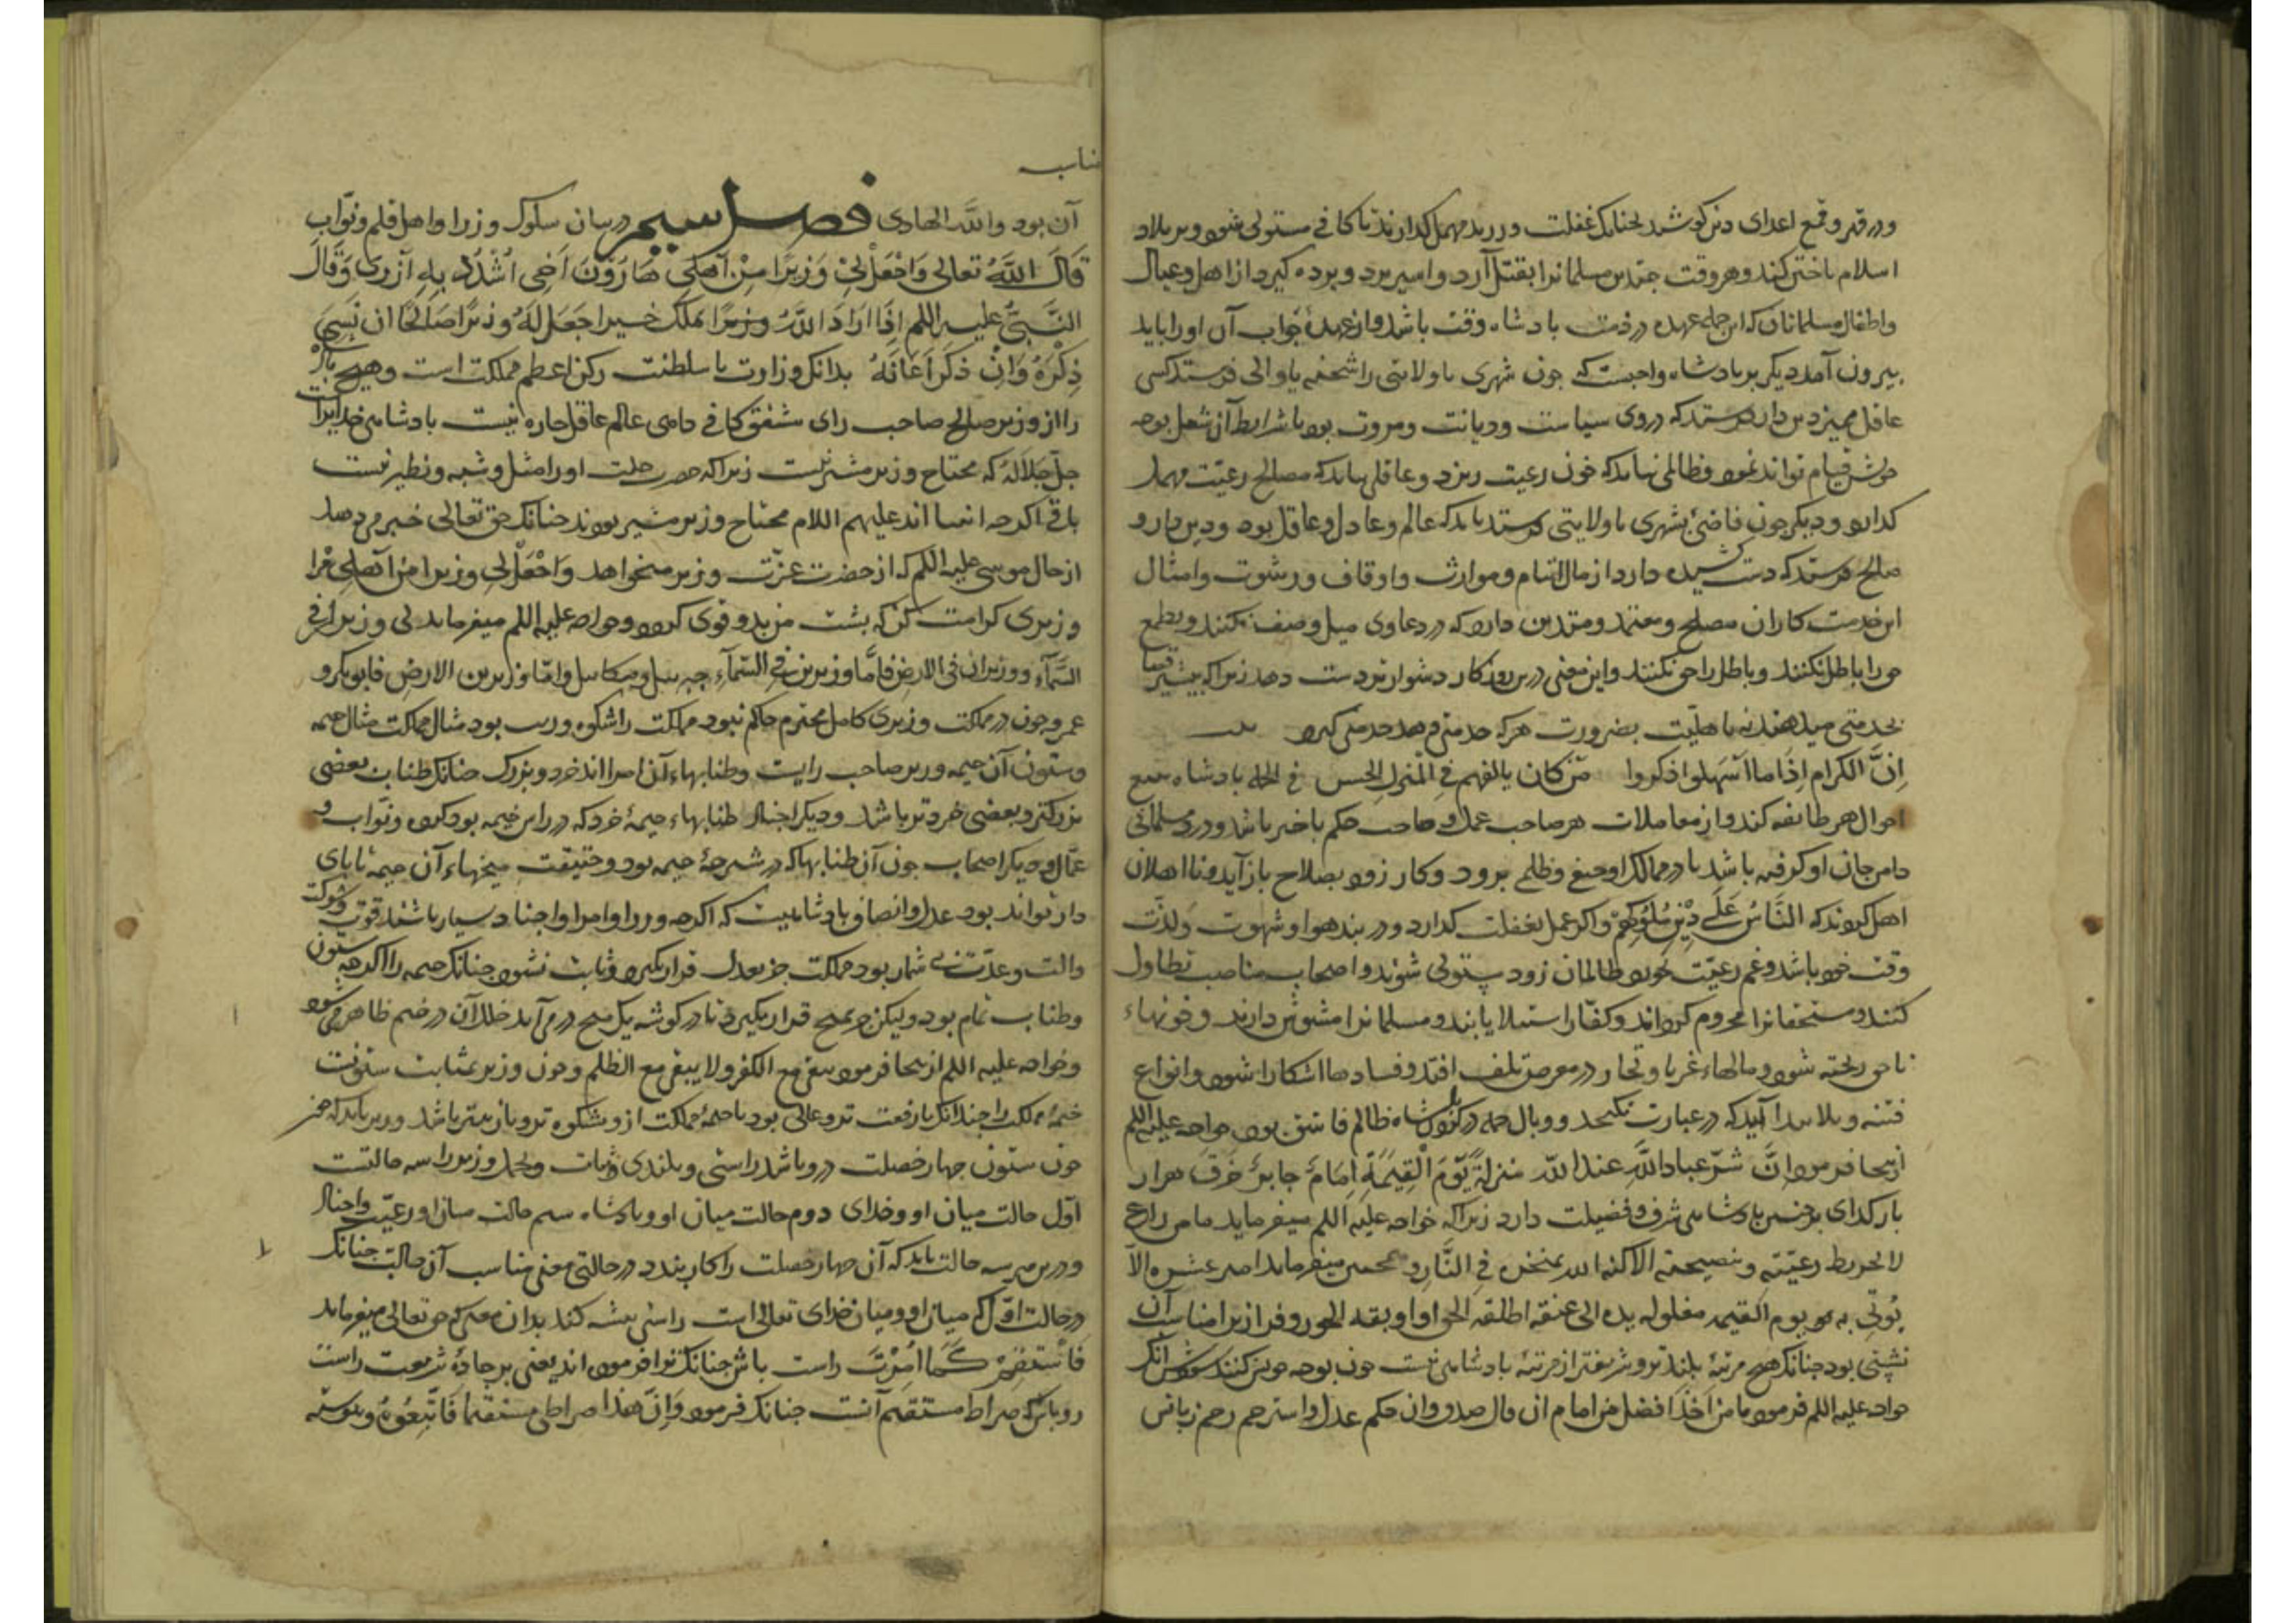 ودر قهر و قمع اعدای دین کوشد نه جنانک غفلت ورزد و مهمل کذارند تا کافی مستولی شود و بر بلاد
اسلام تاختن کند و هر وقت جندین مسلمانرا بقتل آرد و اسیر برد و برده کیرد از اهل و عیال
و اطفال مسلمانان که این جمله عهده در ذمت بادشاه وقت باشد و از عهدهٔ جواب آن او را باید
بیرون آمد دیکر بر بادشاه واجبست که جون شهری یا ولایتی را شحنه یا والی فرستد کسی
عاقل ممیز دین دار فرستد که در وی سیاست و دیانت و مروت بود تا شرایط آن شغل بوجه
خویش قیام تواند نمود و ظالمی نباید که خون رعیت ریزد و غافلی نباید که مصالح رعیت مهمل
کذارد و دیکر جون قاضی بشهری یا ولایتی فرستد باید که عالم و عادل و عاقل بود و دین دار و
صالح فرستد که دست کشیده دارد از مال ایتام و مواریث و اوقاف و رشوت و امثال
این خدمت کاران مصلح و معتمد و متدین دارد که در دعاوی میل و حیف نکنند و بطمع
حق را باطل نکنند و باطل را حق نکنند و این معنی درین روزکار دشوارتر دست دهد زیرا که بیشتر قضا
بخدمتی میدهند نه باهلیت بضرورت هر که خدمتی دهد خدمتی کیرد بیت
اِنَّ الکرام اِذَا ما اَسْهلوا ذکروا مَنْ کان یالفهم فِی الْمَنزل الخشن فی الجمله بادشاه تتبع
احوال هر طایفه کند و از معاملات هر صاحب عمل و صاحب حکم باخبر باشد و درد مسلمانی
دامن جان او کرفته باشد تا در ممالک او حیف و ظلم نرود و کار زود بصلاح باز آید و نا اهلان
اهل کردند که النَّاسُ عَلَی دِیْنِ مُلُوکِهِمْ و اکر عمل بغفلت کذارد و در بند هوا و شهوت و لذّت
وقت خود باشد و غم رعیّت نخورد ظالمان زود مستولی شوند و اصحاب مناصب تطاول
کنند و مستحقانرا محروم کردانند و کفّار استیلا یابند و مسلمانرا مشوّش دارند و خونهاء
ناحق ریخته شود و مالهاء غربا و تجار در معرض تلف افتد و فسادها آشکارا شود و انواع
فتنه و بلا پیدا آید که در عبارت نکنجد و وبال جمله در کردن بادشاه ظالم فاسق بود خواجه علیه اللم
ازینجا فرمود اِنَّ شَرّ عباد اللّه عند اللّه منزلةً یَوْمَ الْقِیٰمَةِ اِمَامٌ جایرٌ خَرِقٌ هزار
بار کدای بر جنین بادشاهی شرف و فضیلت دارد زیرا که خواجه علیه اللم میفرماید ما من راع
لا یحوط رعیّته و بنصیحته الا کبّه الله بمنخره فی النَّار و همجنین میفرماید امیر عشرة الّا
یُوتَی به یوم القیمة مغلولة یده الی عنقه اطلقه الحق او اوبقه الجور و فراز را مناسب آن
نشیبی بود جنانک هیج مرتبهٔ بلندتر و شریفتر از مرتبهٔ بادشاهی نیست جون بوجه خویش کنند آنک
خواجه علیه اللم فرمود ما من اَحَد افضل من امام ان قال صدق و ان حکم عدل و استرحم رحم زیانش
مناسب
آن بود واللّه الهادی فصل سیم در بیان سلوک وزرا و اهل قلم و نوّاب
قَالَ اللّهُ تعالی وَاجْعَلْ لِی وَزیرًا مِنْ اَهْلِی هَارُوْنَ اَخِی اُشْدُدْ بِهِ اَزْرِی وَقَالَ
النَّبِیُّ علیه اللم اِذَا اَرَادَ اللّهُ بملک خیرا جَعَلَ لَهُ وزیرًا صَالِحًا اِن نَسِیَ
ذِکْرَهُ وَاِنْ ذکَرَ اَعَانَهُ بدانک وزارت با سلطنت رکن اعظم مملکت است و هیج بادشاه
را از وزیر صالح صاحب رای مشفق کافی حامی عالم عاقل جاره نیست بادشاهی خدایراست
جلّ جلاله که محتاج وزیر مشیر نیست زیرا که حضرت جلت او را مثل و شبه و نظیر نیست
باقی اکرجه انبیا اند علیهم اللام محتاج وزیر مشیر بودند جنانک حق تعالی خبر می دهد
از حال موسی علیه اللم که از حضرت عزّت وزیر میخواهد وَاجْعَلْ لِی وزیرا من اَهْلِی مرا
وزیری کرامت کن که بشت من بدو قوی کردد و خواجه علیه اللم میفرماید لی وزیران فی
السَّمآءِ و وزیران فی الارض فامّا وزیرین فِی السَّمآءِ جبرییل و میکاییل و امّا وزیرین الارض فابوبکر و
عمر و جون در مملکت وزیری کامل محترم حاکم نبود مملکت را شکوه و زیب نبود مثال مملکت مثال خیمه
و ستون آن خیمه وزیر صاحب رایست و طنابهاء آن امرا اند خرد و بزرک جنانک طناب بعضی
بزرکتر و بعضی خردتر باشد و دیکر اجناد طنابهاء خیمهٔ خرد که در دامن خیمه بود کرد و نوّاب و
عمّال و دیکر اصحاب جون آن طنابها که در شرجهٔ خیمه بود و حقیقت میخهاء آن خیمه تا بای
دار تواند بود عدل و انصاف بادشاهیست که اکرجه وزرا و امرا و اجناد بسیار باشند قوّت و شوکت
و آلت و عدّت بی شمار بود مملکت جز بعدل قرار نکیرد و ثابت نشود جنانک خیمه را اکرجه ستون
و طناب تمام بود ولیکن جز بمیخ قرار نکیرد تا در کوشه یک میخ در می آید خلل آن در خیمه ظاهر می شود
و خواجه علیه اللم ازینجا فرمود یبقی مع الکفر و لا یبقی مع الظلم و جون وزیر بمثابت ستونست
خیمهٔ مملکت را جندانک با رفعت تر و عالی بود با خیمهٔ مملکت ازو شکوه تر و با زینت تر باشد و وزیر باید که همجو
جون ستون جهار خصلت درو باشد راستی و بلندی و ثبات و تحمل و وزیر را سه حالتست
اوّل حالت میان او و خدای دوم حالت میان او و بادشاه سیم حالت میان او و رعیّت و اجناد
و درین هر سه حالت باید که آن جهار خصلت را کار بندد در حالتی معنی مناسب آن حالت جنانک
در حالت اوّل که میان او و میان خدای تعالی است راستی بیشه کند بدان معنی که حق تعالی میفرماید
فَاسْتَقِمْ کَمَا اُمِرْتَ راست باش جنانک ترا فرموده اند یعنی بر جادهٔ شریعت راست
رو باش که صراط مستقیم آنست جنانک فرمود وَاِنَّ هٰذَا صراطی مستقیما فَاتَّبِعُوْهُ و بیوسته